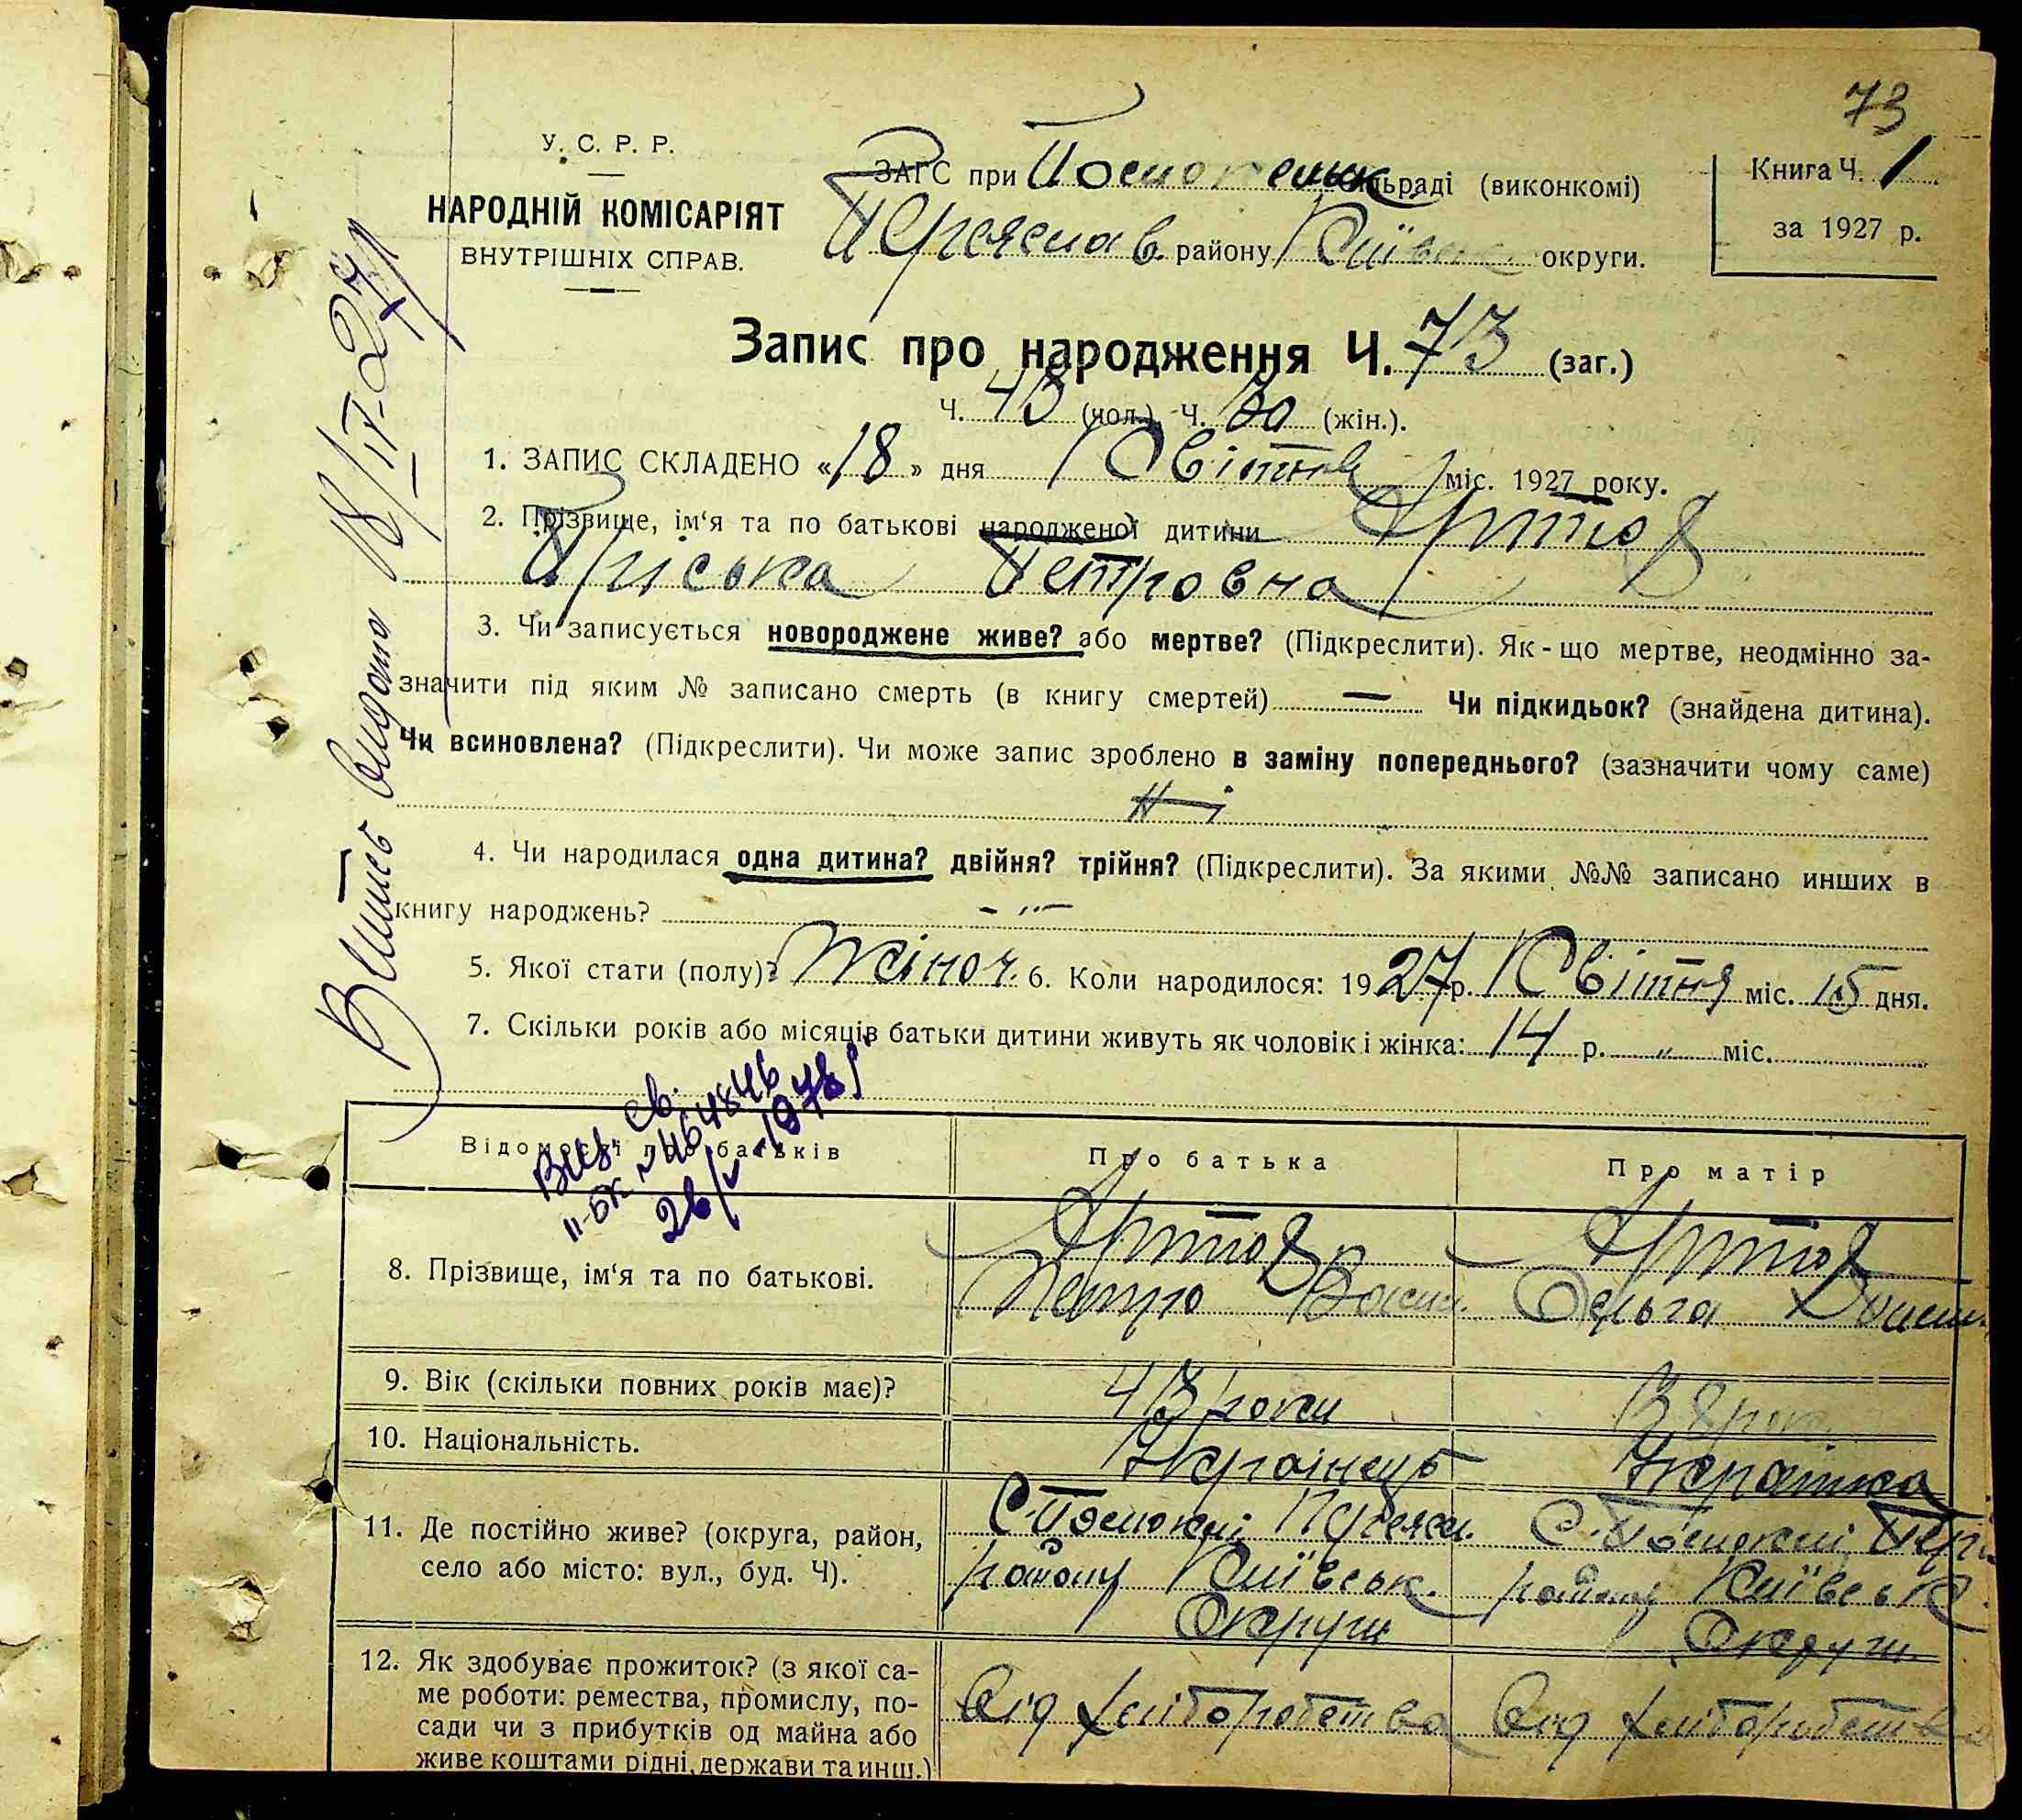 73
У. С. Р. Р.
НАРОДНІЙ КОМІСАРІЯТ
ВНУТРІШНІХ СПРАВ.
ЗАГС при сільраді (виконкомі)
Переяслав. району Київськ округи.
Книга Ч. 1
за 1927 р.
Запис про народження Ч. 73 (заг.)
Ч. 43 (чол.) Ч. 30 (жін.).
1. ЗАПИС СКЛАДЕНО «18» дня Квітня міс. 1927 року.
2. Прізвище, ім‘я та по батькові народженої дитини Артюх
Пріська Петровна
3. Чи записується новороджене живе? або мертве? (Підкреслити). Як-що мертве, неодмінно за-
значити під яким № записано смерть (в книгу смертей) — Чи підкидьок? (знайдена дитина).
Чи всиновлена? (Підкреслити). Чи може запис зроблено в заміну попереднього? (зазначити чому саме)
Ні
4. Чи народилася одна дитина? двійня? трійня? (Підкреслити). За якими №№ записано инших в
книгу народжень? - „ -
5. Якої стати (полу)? Жіноч. 6. Коли народилося: 1927 р. Квітня міс. 15 дня.
7. Скільки років або місяців батьки дитини живуть як чоловік і жінка: 14 р. „ міс.
Витяг видано 18/IV-27
Відомості про батьків Про батька Про матір
8. Прізвище, ім‘я та по батькові.
Артюх
Петро
Артюх
Ольга
9. Вік (скільки повних років має)? 43 роки 38 рок
10. Національність. Українець Українка
11. Де постійно живе? (округа, район,
село або місто: вул., буд. Ч).
району Київськ.
Округи
району Київськ
Округи.
12. Як здобуває прожиток? (з якої са-
ме роботи: ремества, промислу, по-
сади чи з прибутків од майна або
живе коштами рідні, держави та инш.)
Від хліборобства Від хліборобства